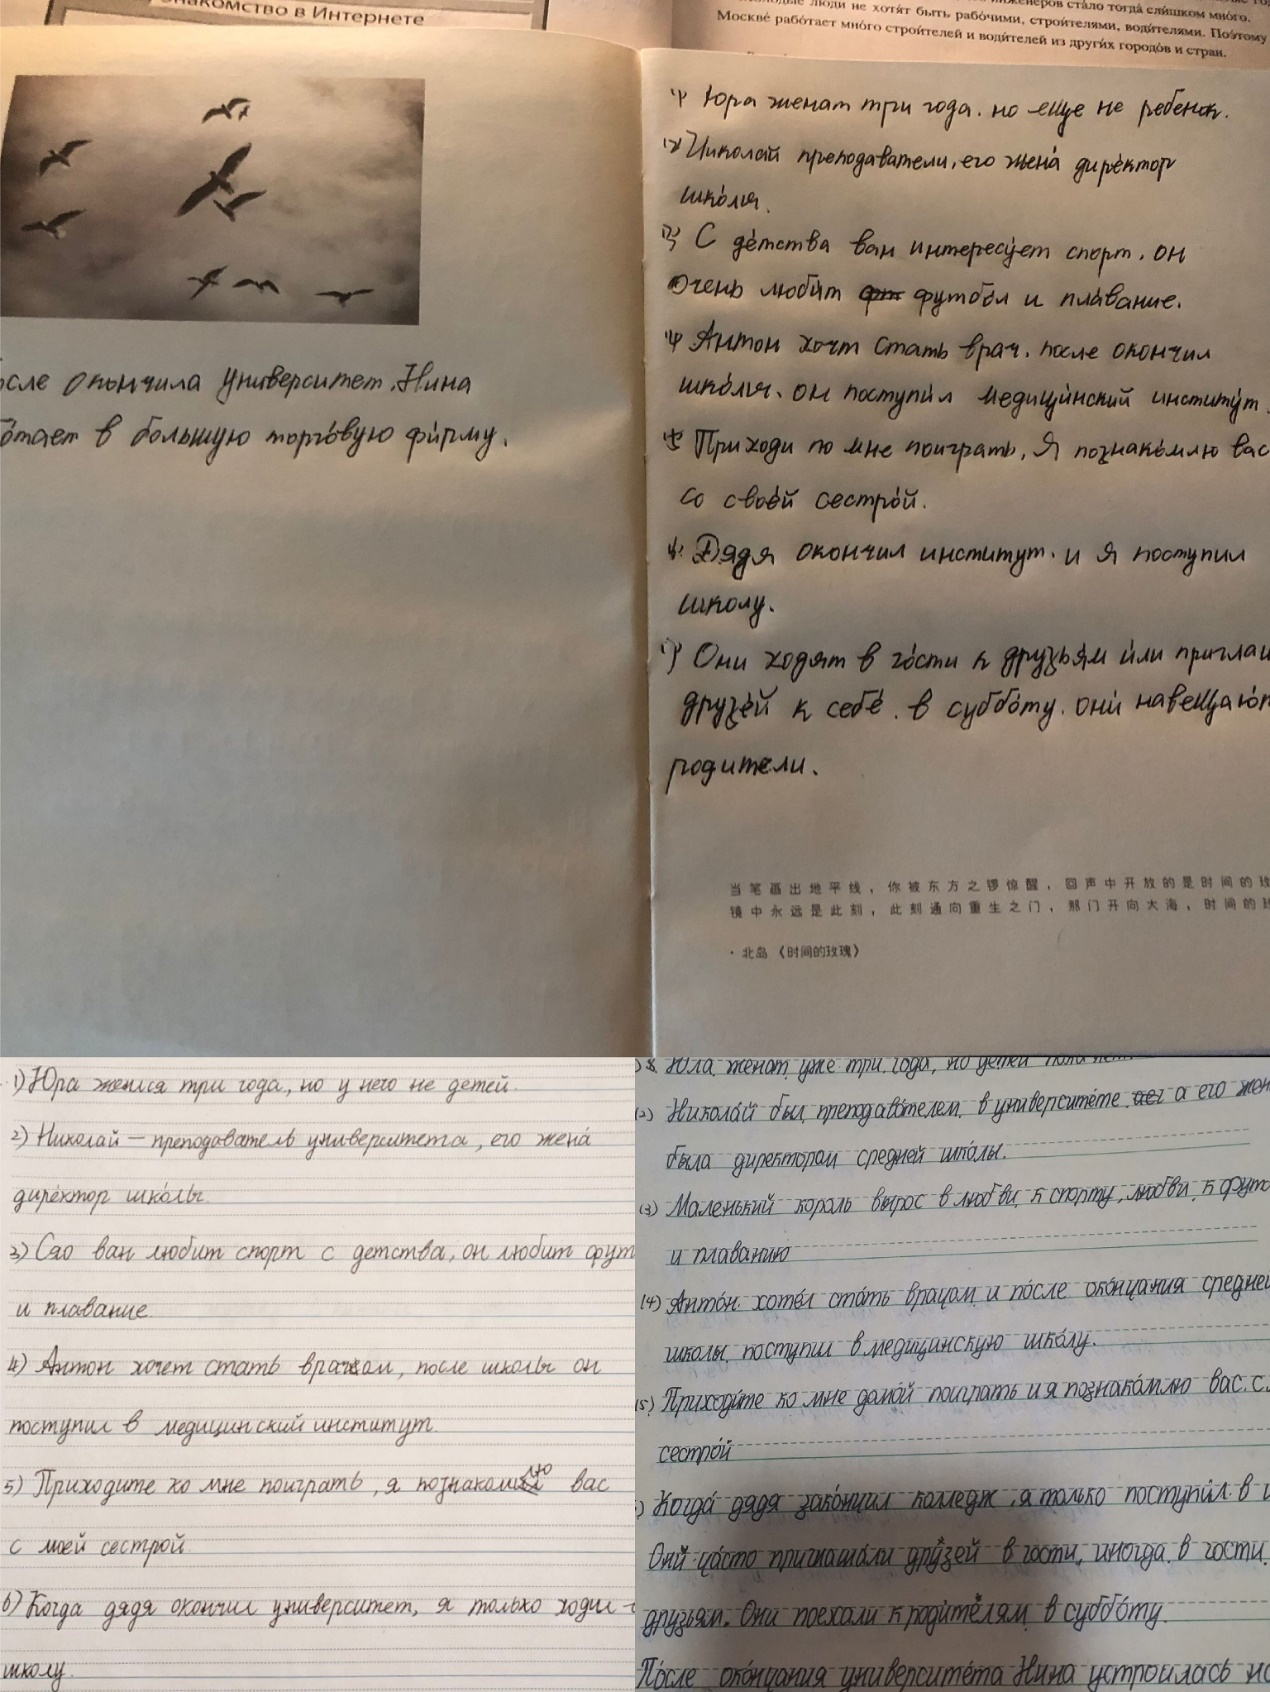 знакомство в Интернете
стало тогда слишком много.
люди не хотят быть рабочими, строителями, водителями. Поэтому
Москве работает много строителей и водителей из других городов и стран.
окончила университет, Нина
в большую торговую фирму.
1) Юра женат три года. но еще не ребенок.
2) Николай преподаватели, его жена директор
школы.
3) С детства ван интересует спорт. он
очень любит футбол и плавание.
4) Антон хочт стать врач. после окончил
школы. он поступил медицинский институт.
5) Приходи по мне поиграть, Я познакомлю вас
со своей сестрой.
6) Дядя окончил институт. и я поступил
школу.
7) Они ходят в гости к друзьям или
друзей к себе. в субботу. они
родители.
当笔画出地平线，你被东方之锣惊醒，回声中开放的是时间的玫
镜中永远是此刻，此刻通向重生之门，那门开向大海，时间的玫
·北岛《时间的玫瑰》
1) Юра женися три года, но у него не детей.
2) Николай — преподаватель университета, его жена
директор школы.
3) Сяо ван любит спорт с детства, он любит
и плавание.
4) Антон хочет стать врачом, после школы он
поступил в медицинский институт.
5) Приходите ко мне поиграть, я познакомлю вас
с моей сестрой.
6) Когда дядя окончил университет, я только ходил
школу.
женат уже три года, но детей
(2) Николай был преподавателем в университете, а его
была директором средней школы.
(3) Маленький король вырос в любви к спорту, любви к
и плаванию
(4) Антон хотел стать врачом и после окончания
школы поступил в медицинскую школу.
(5) Приходите ко мне домой поиграть и я познакомлю вас с
сестрой
Когда дядя закончил колледж, я только поступил в
Они часто приглашали друзей в гости, иногда в гости
друзьям. Они поехали к родителям в субботу.
После окончания университета Нина устроилась